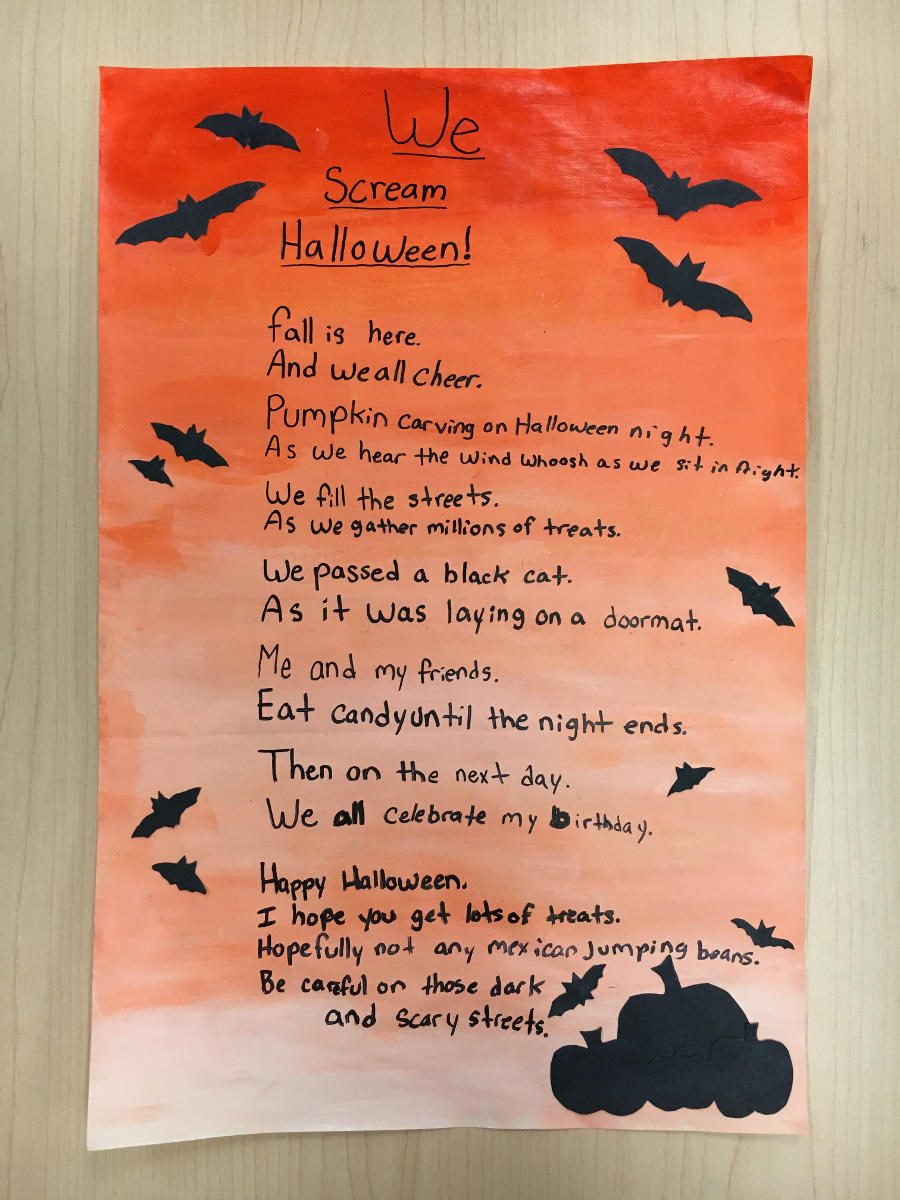 We
Scream
Halloween!
fall is here.
And we all cheer.
Pumpkin carving on Halloween night.
As we hear the wind whoosh as we sit in fright.
We fill the streets.
As we gather millions of treats.
We passed a black cat.
As it was laying on a doormat.
Me and my friends.
Eat candy until the night ends.
Then on the next day.
We all celebrate my birthday.
Happy Halloween.
I hope you get lots of treats.
Hopefully not any mexican jumping beans.
Be careful on those dark
and scary streets.